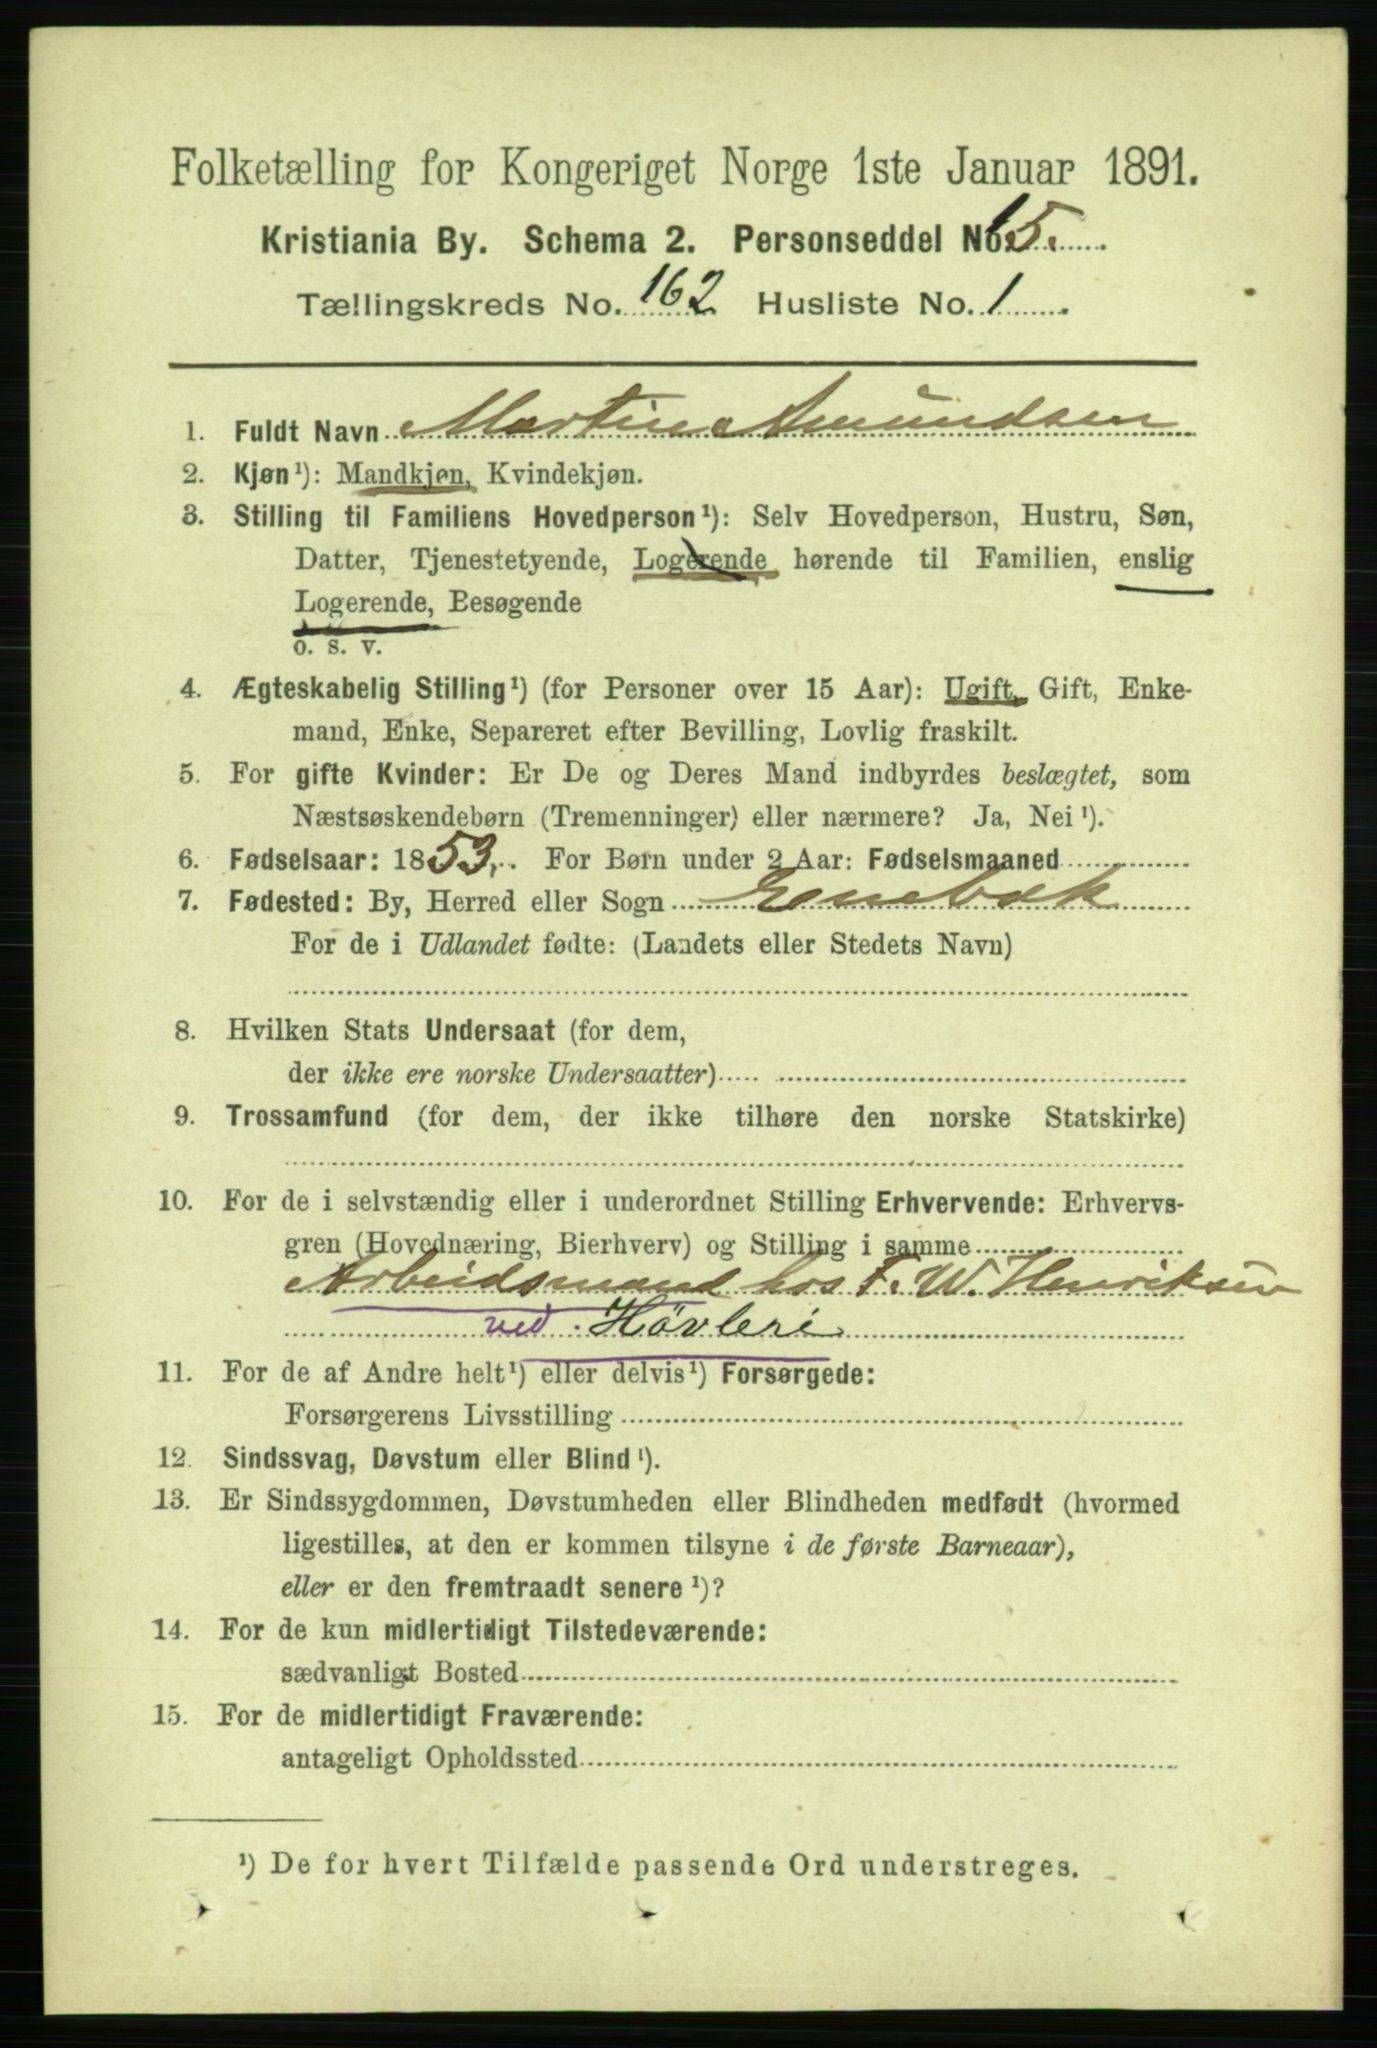 Folketælling for Kongeriget Norge 1ste Januar 1891.
Kristiania By. Schema 2. Personseddel No. 15.
Tællingskreds No. 162 Husliste No. 1
1. Fuldt Navn Martin Amundsen
2. Kjøn¹): Mandkjøn, Kvindekjøn.
3. Stilling til Familiens Hovedperson¹): Selv Hovedperson, Hustru, Søn,
Datter, Tjenestetyende, Logerende hørende til Familien, enslig
Logerende, Besøgende
o. s. v.
4. Ægteskabelig Stilling¹) (for Personer over 15 Aar): Ugift, Gift, Enke-
mand, Enke, Separeret efter Bevilling, Lovlig fraskilt.
5. For gifte Kvinder: Er De og Deres Mand indbyrdes beslægtet, som
Næstsøskendebørn (Tremenninger) eller nærmere? Ja, Nei¹).
6. Fødselsaar: 1853. For Børn under 2 Aar: Fødselsmaaned
7. Fødested: By, Herred eller Sogn Enebak
For de i Udlandet fødte: (Landets eller Stedets Navn)
8. Hvilken Stats Undersaat (for dem,
der ikke ere norske Undersaatter)
9. Trossamfund (for dem, der ikke tilhøre den norske Statskirke)
10. For de i selvstændig eller i underordnet Stilling Erhvervende: Erhvervs-
gren (Hovednæring, Bierhverv) og Stilling i samme
Arbeidsmand hos F. W. Henriksen
ved Høvleri
11. For de af Andre helt¹) eller delvis¹) Forsørgede:
Forsørgerens Livsstilling
12. Sindssvag, Døvstum eller Blind¹).
13. Er Sindssygdommen, Døvstumheden eller Blindheden medfødt (hvormed
ligestilles, at den er kommen tilsyne i de første Barneaar),
eller er den fremtraadt senere¹)?
14. For de kun midlertidigt Tilstedeværende:
sædvanligt Bosted
15. For de midlertidigt Fraværende:
antageligt Opholdssted
¹) De for hvert Tilfælde passende Ord understreges.